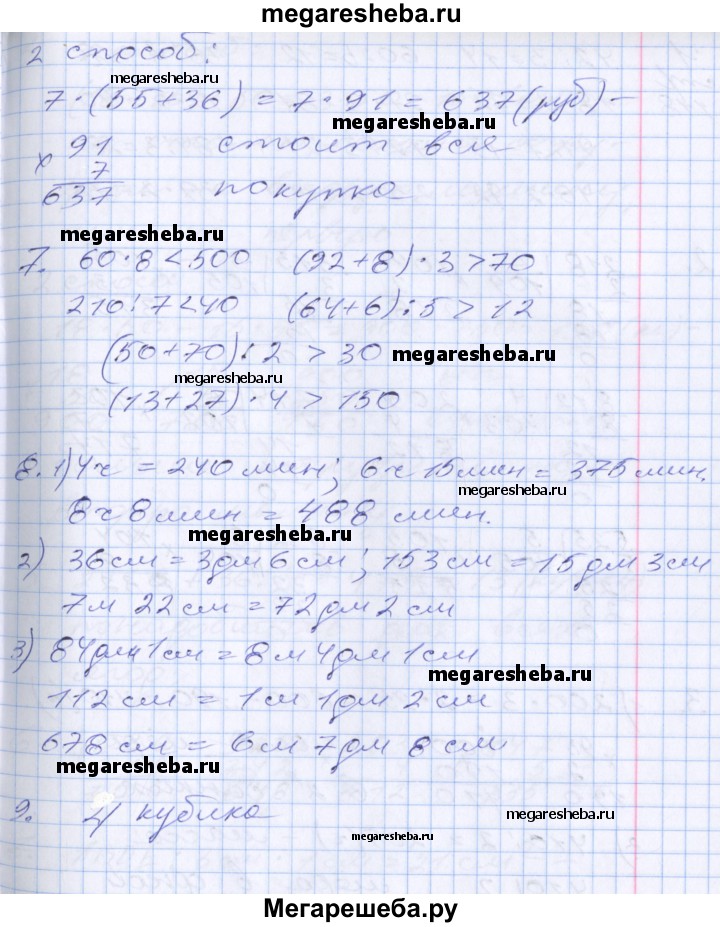 megaresheba.ru
2 способ:
megaresheba.ru
7·(55+36) = 7·91 = 637(руб) –
megaresheba.ru
× 91 стоит вся
7
637 покупка
megaresheba.ru
7. 60·8<500 (92+8)·3>70
210:7<40 (64+6):5>12
(50+70):2 >30 megaresheba.ru
megaresheba.ru
(13+27)·4>150
8. 1) 4ч = 240 мин; 6ч 15мин = 375 мин.
megaresheba.ru
8ч 8мин = 488 мин.
megaresheba.ru
2) 36см = 3дм 6см; 153см = 15дм 3см
7м 22см = 72дм 2см
3) 84дм 1см = 8м 4дм 1см
megaresheba.ru
112см = 1м 1дм 2см
678см = 6м 7дм 8см
megaresheba.ru
9. 4 кубика
megaresheba.ru
megaresheba.ru
Мегарешеба.ру